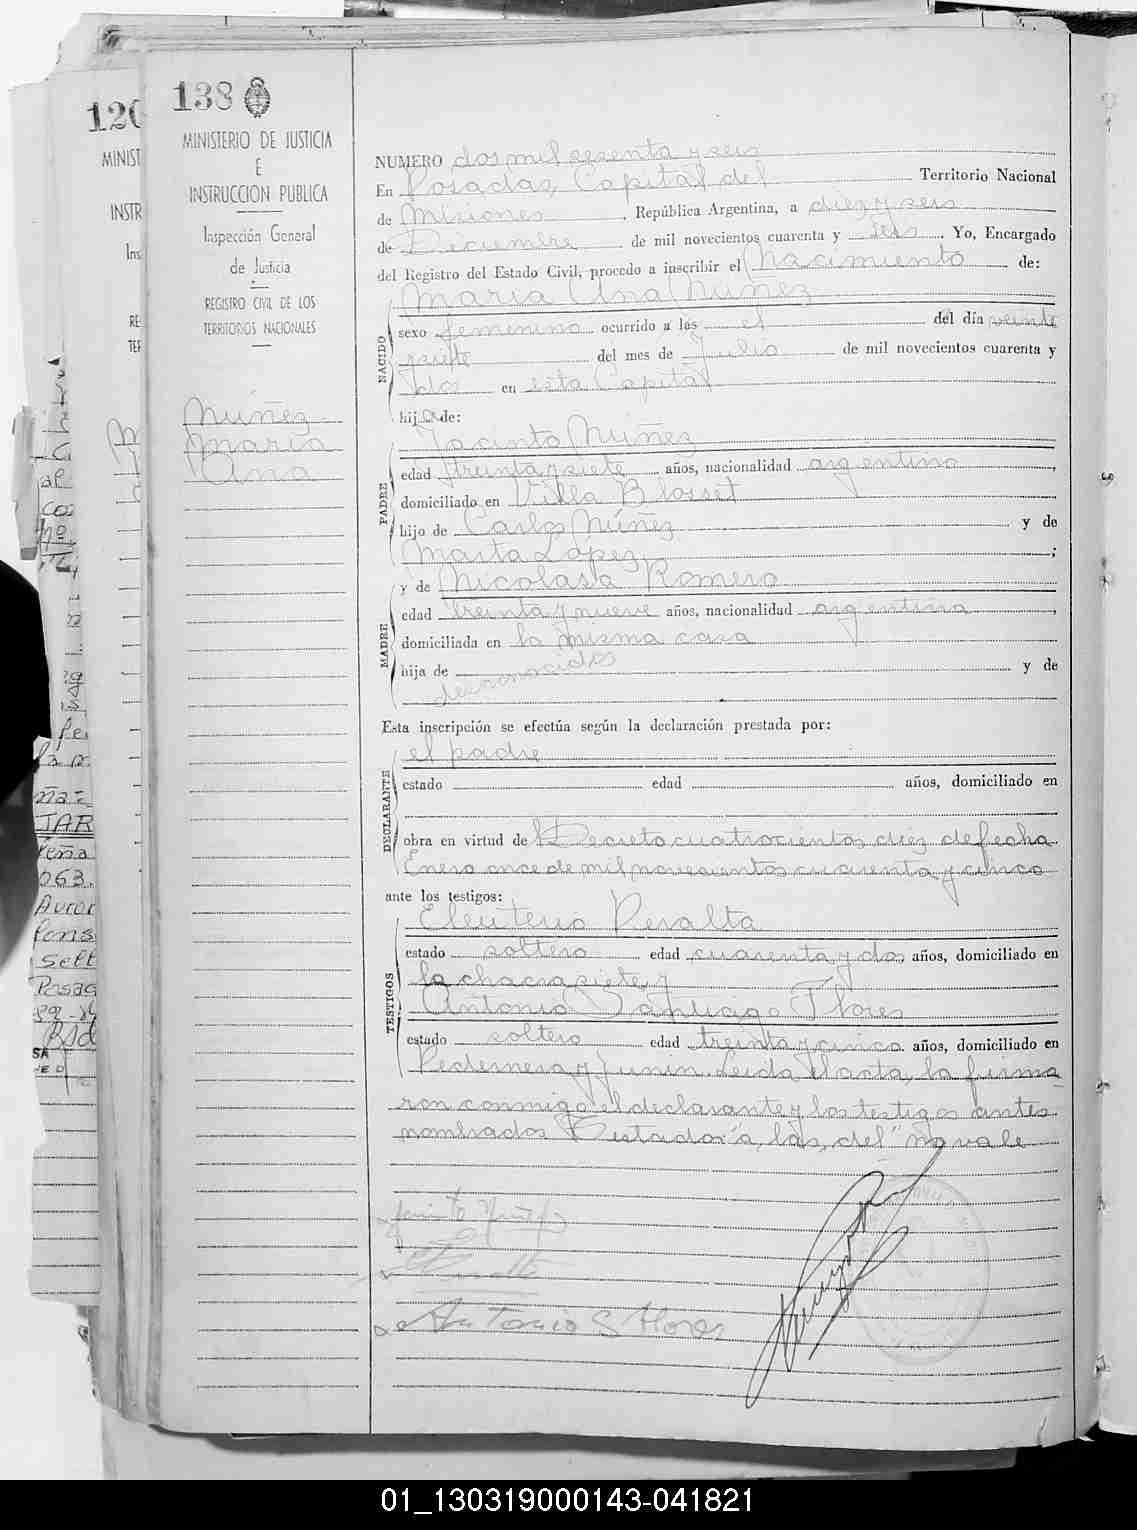 138
MINISTERIO DE JUSTICIA
E
INSTRUCCION PUBLICA
Inspección General
de Justicia
REGISTRO CIVIL DE LOS
TERRITORIOS NACIONALES
Núñez
María
Ana
NUMERO dos mil sesenta y seis
En Posadas, Capital del Territorio Nacional
de Misiones, República Argentina, a diez y seis
de Diciembre de mil novecientos cuarenta y seis. Yo, Encargado
del Registro del Estado Civil, procedo a inscribir el Nacimiento de:
NACIDO
María Ana Núñez
sexo femenino ocurrido a las el del día veinte
siete del mes de Julio de mil novecientos cuarenta y
dos en esta Capital
hija de:
PADRE
Jacinto Núñez
edad treinta y siete años, nacionalidad argentino,
domiciliado en Villa Blosset
hijo de Carlos Núñez y de
Marta López;
MADRE
y de Nicolasa Romero
edad treinta y nueve años, nacionalidad argentina,
domiciliada en la misma casa
hija de desconocidos y de
Esta inscripción se efectúa según la declaración prestada por:
DECLARANTE
el padre
estado edad años, domiciliado en
obra en virtud de Decreto cuatrocientos diez de fecha
Enero once de mil novecientos cuarenta y cinco
ante los testigos:
TESTIGOS
Eleuterio Peralta
estado soltero edad cuarenta y dos años, domiciliado en
la chacra siete y
Antonio Santiago Flores
estado soltero edad treinta y cinco años, domiciliado en
Pedernera y Junín. Leida el acta, la firma-
ron conmigo el declarante y los testigos antes
nombrados. Testador "a, las, del" no vale
Jacinto Núñez
Antonio S Flores
120
MINIST
INSTR
Ins
RE
TER
JAR
063.
01_130319000143-041821